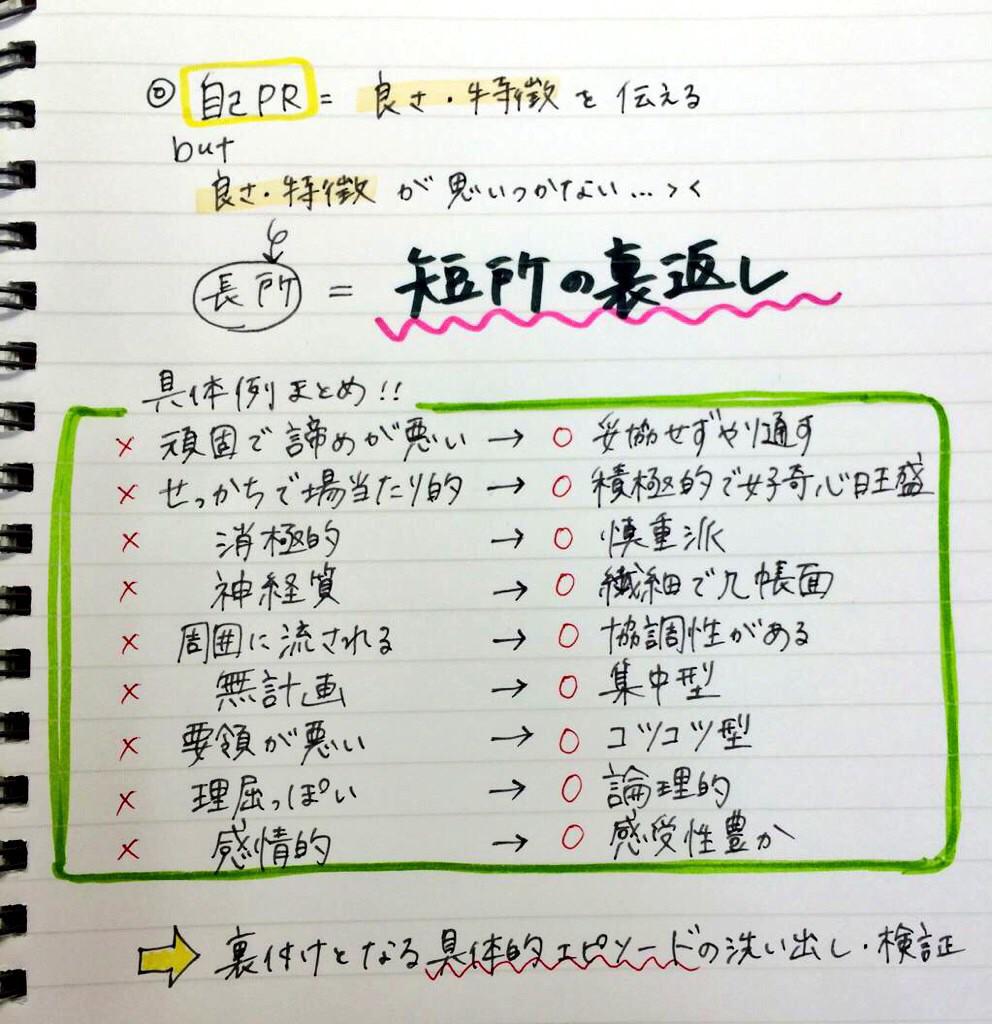 ◎ 自己PR = 良さ・特徴を伝える
but
良さ・特徴が思いつかない...><
長所 = 短所の裏返し
具体例まとめ!!
× 頑固で諦めが悪い → ○ 妥協せずやり通す
× せっかちで場当たり的 → ○ 積極的で好奇心旺盛
× 消極的 → ○ 慎重派
× 神経質 → ○ 繊細で几帳面
× 周囲に流される → ○ 協調性がある
× 無計画 → ○ 集中型
× 要領が悪い → ○ コツコツ型
× 理屈っぽい → ○ 論理的
× 感情的 → ○ 感受性豊か
⇒ 裏付けとなる具体的エピソードの洗い出し・検証